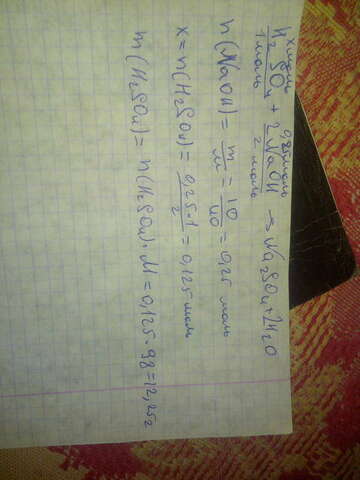 x моль 0,25 моль
H₂SO₄ + 2NaOH → Na₂SO₄ + 2H₂O
1 моль 2 моль
n(NaOH) = m/M = 10/40 = 0,25 моль
x = n(H₂SO₄) = 0,25·1/2 = 0,125 моль
m(H₂SO₄) = n(H₂SO₄)·M = 0,125·98 = 12,25г